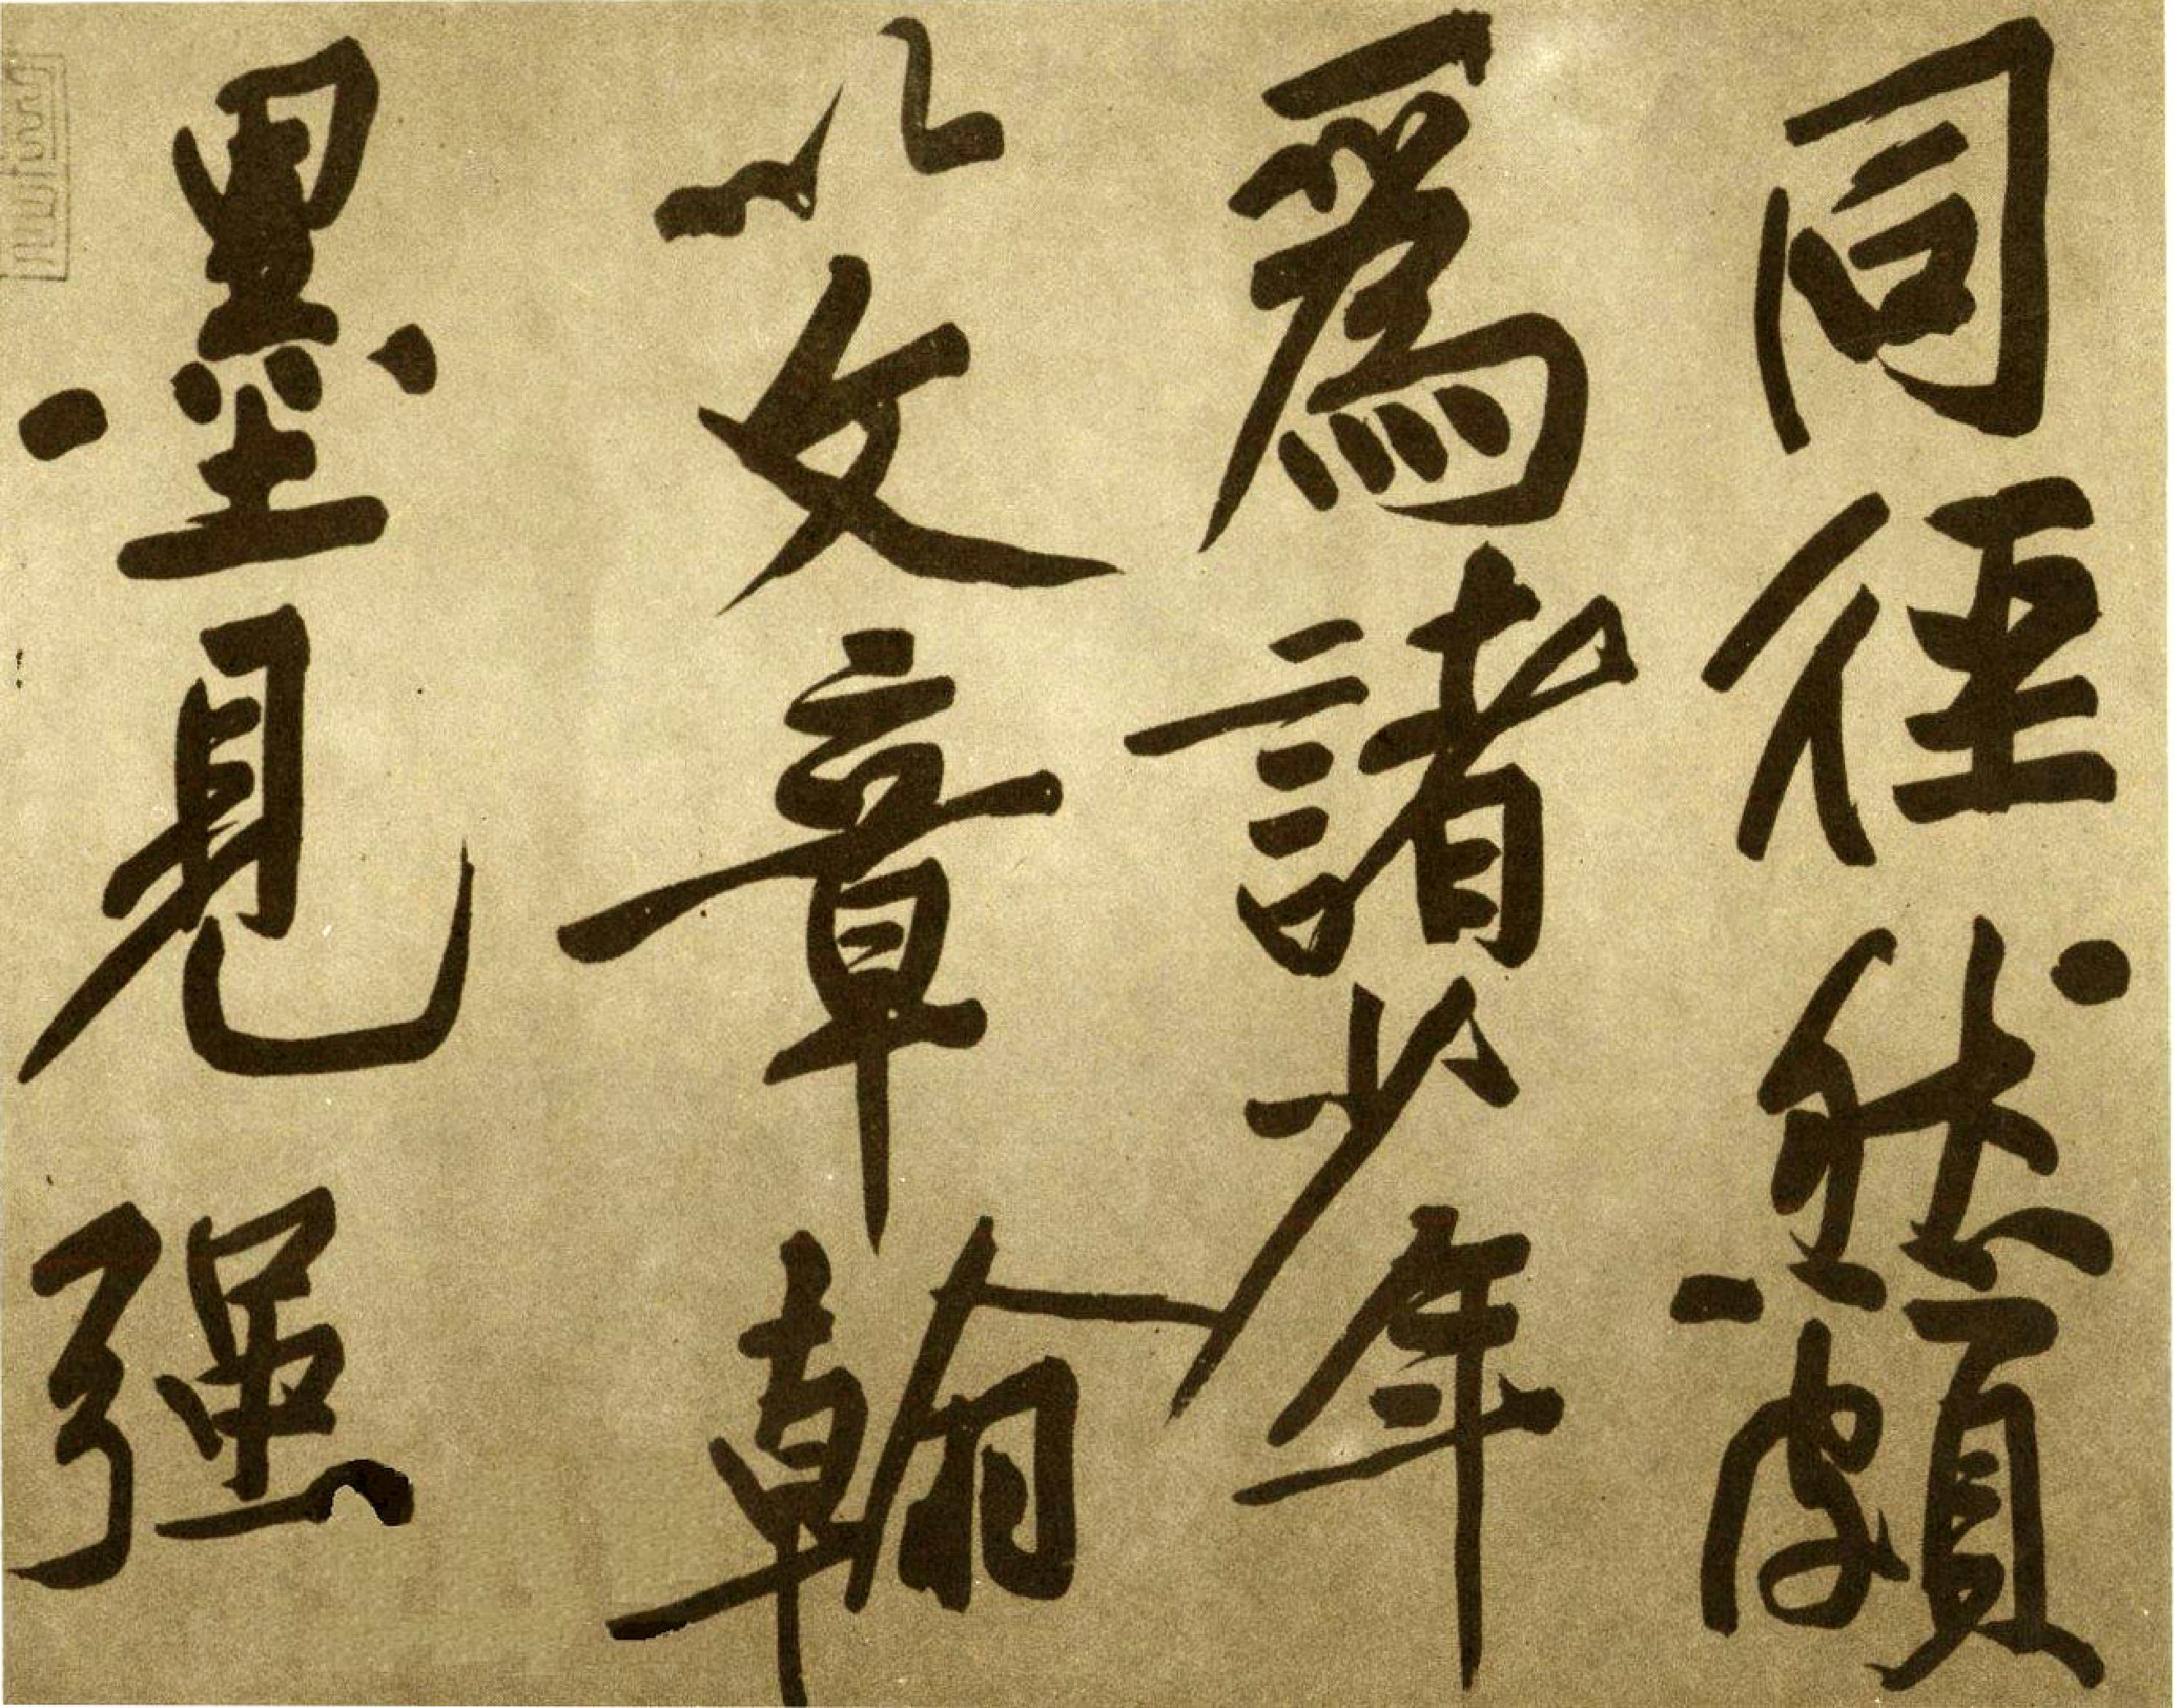 同侄然頗
爲諸少年
以文章翰
墨見強